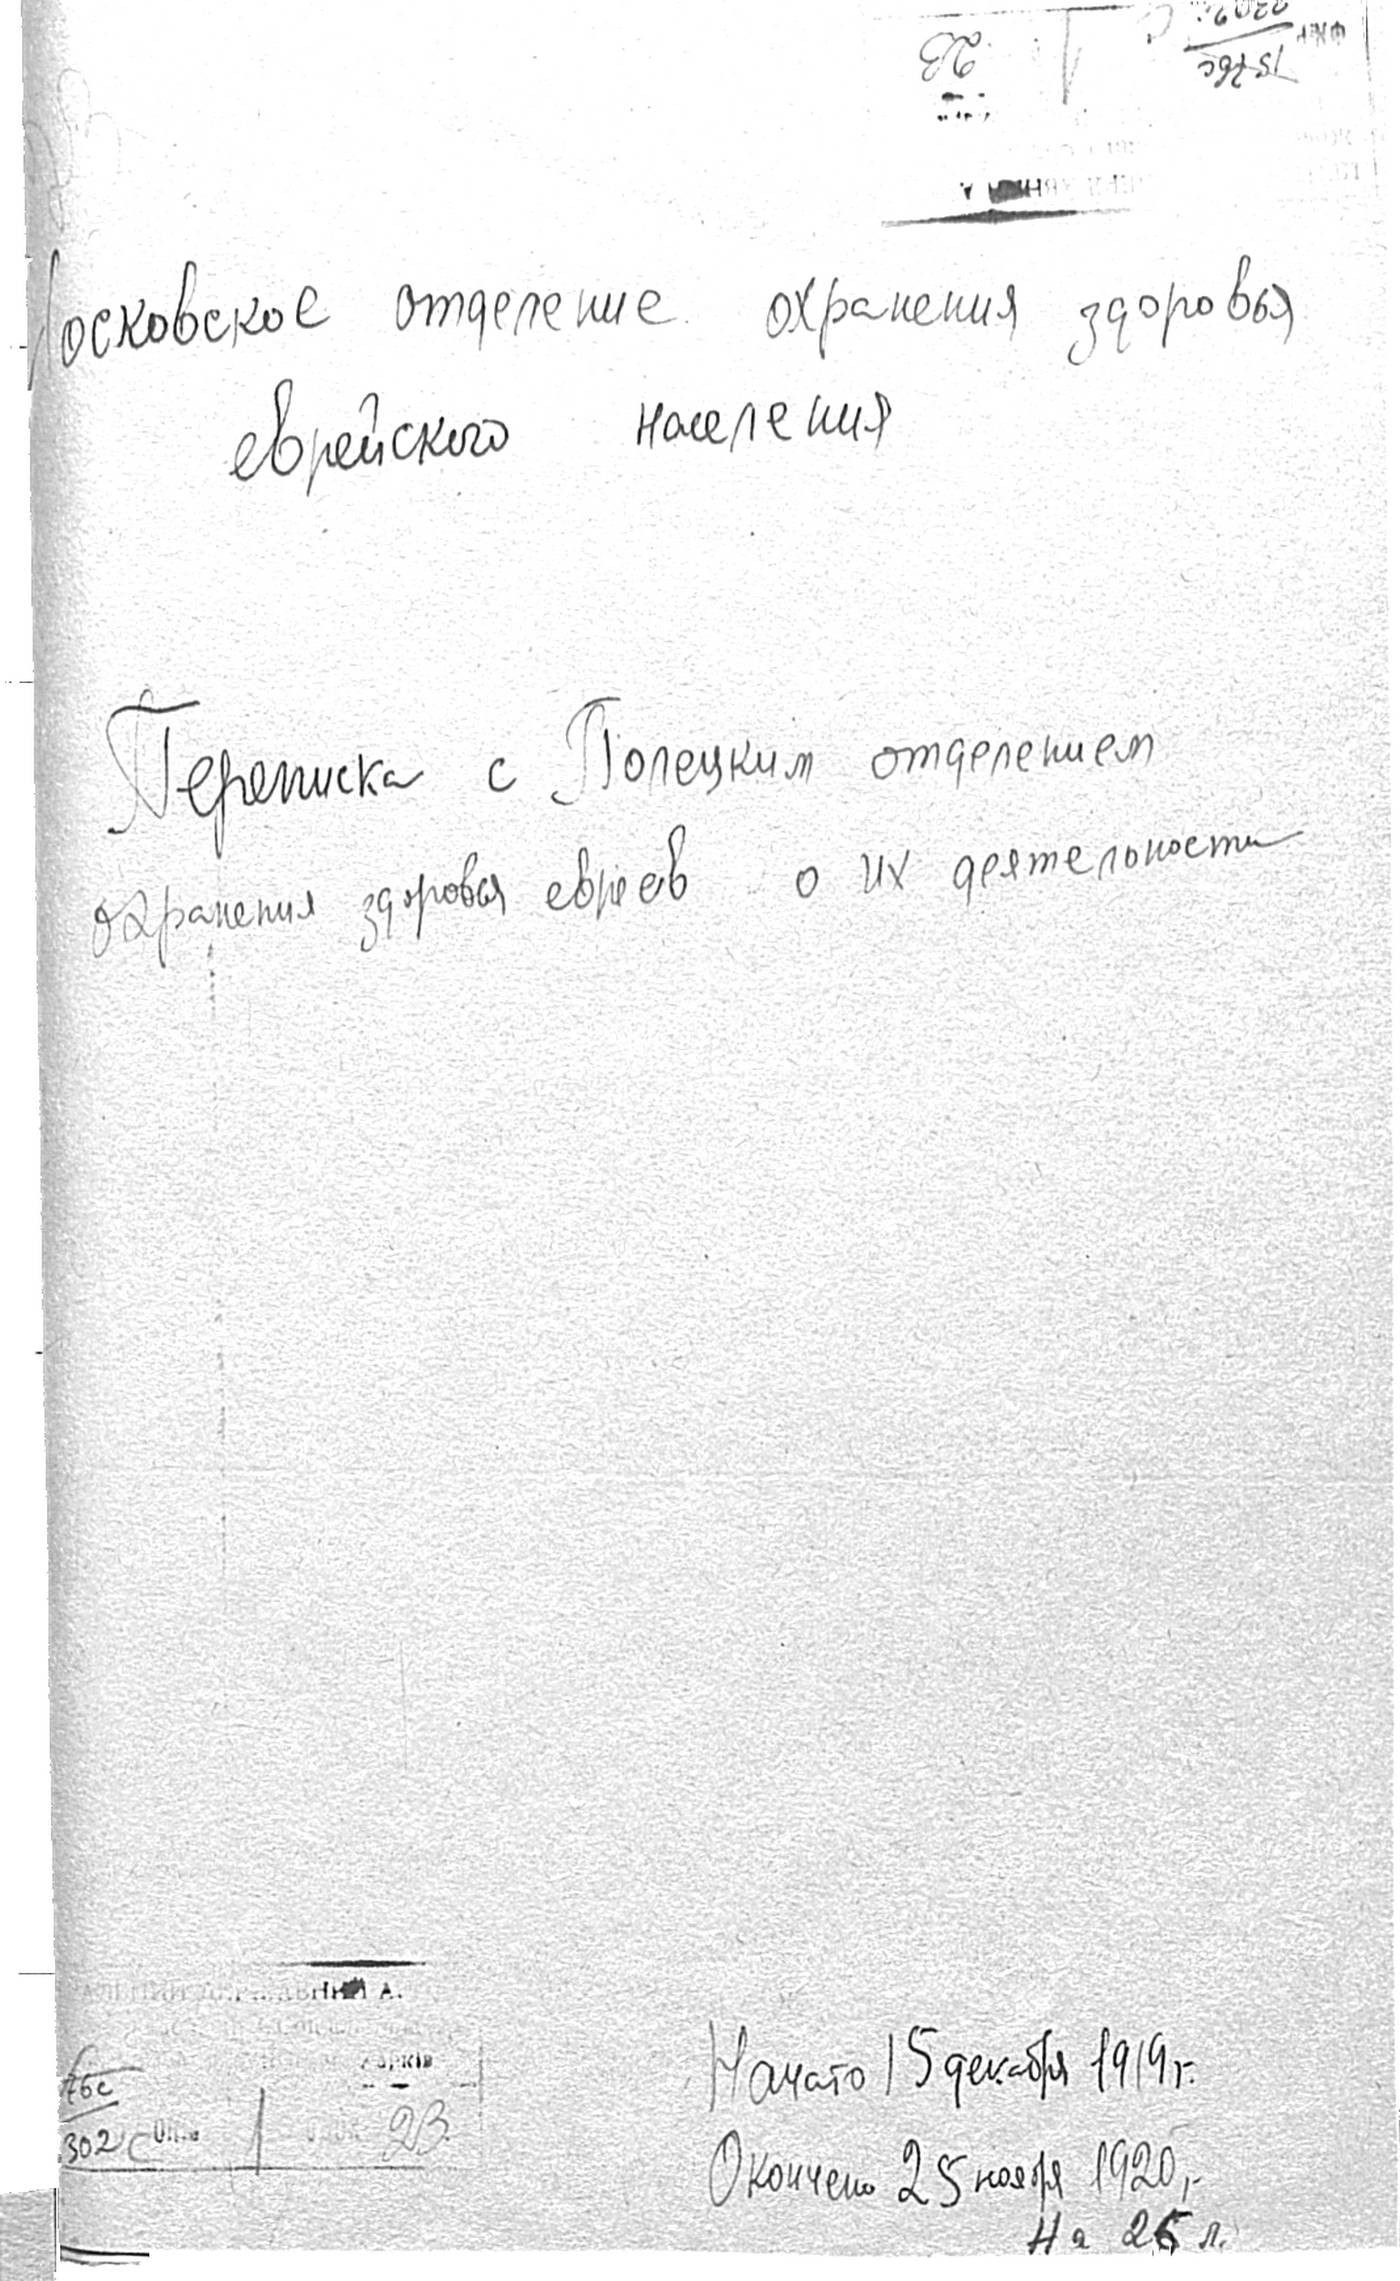 Московское отделение охранения здоровья
еврейского населения
Переписка с Полецким отделением
охранения здоровья евреев о их деятельности
Харків
76с
302 С Опис 1 23.
Начато 15 декабря 1919 г.
Окончено 25 ноября 1920 г.
На 26 л.